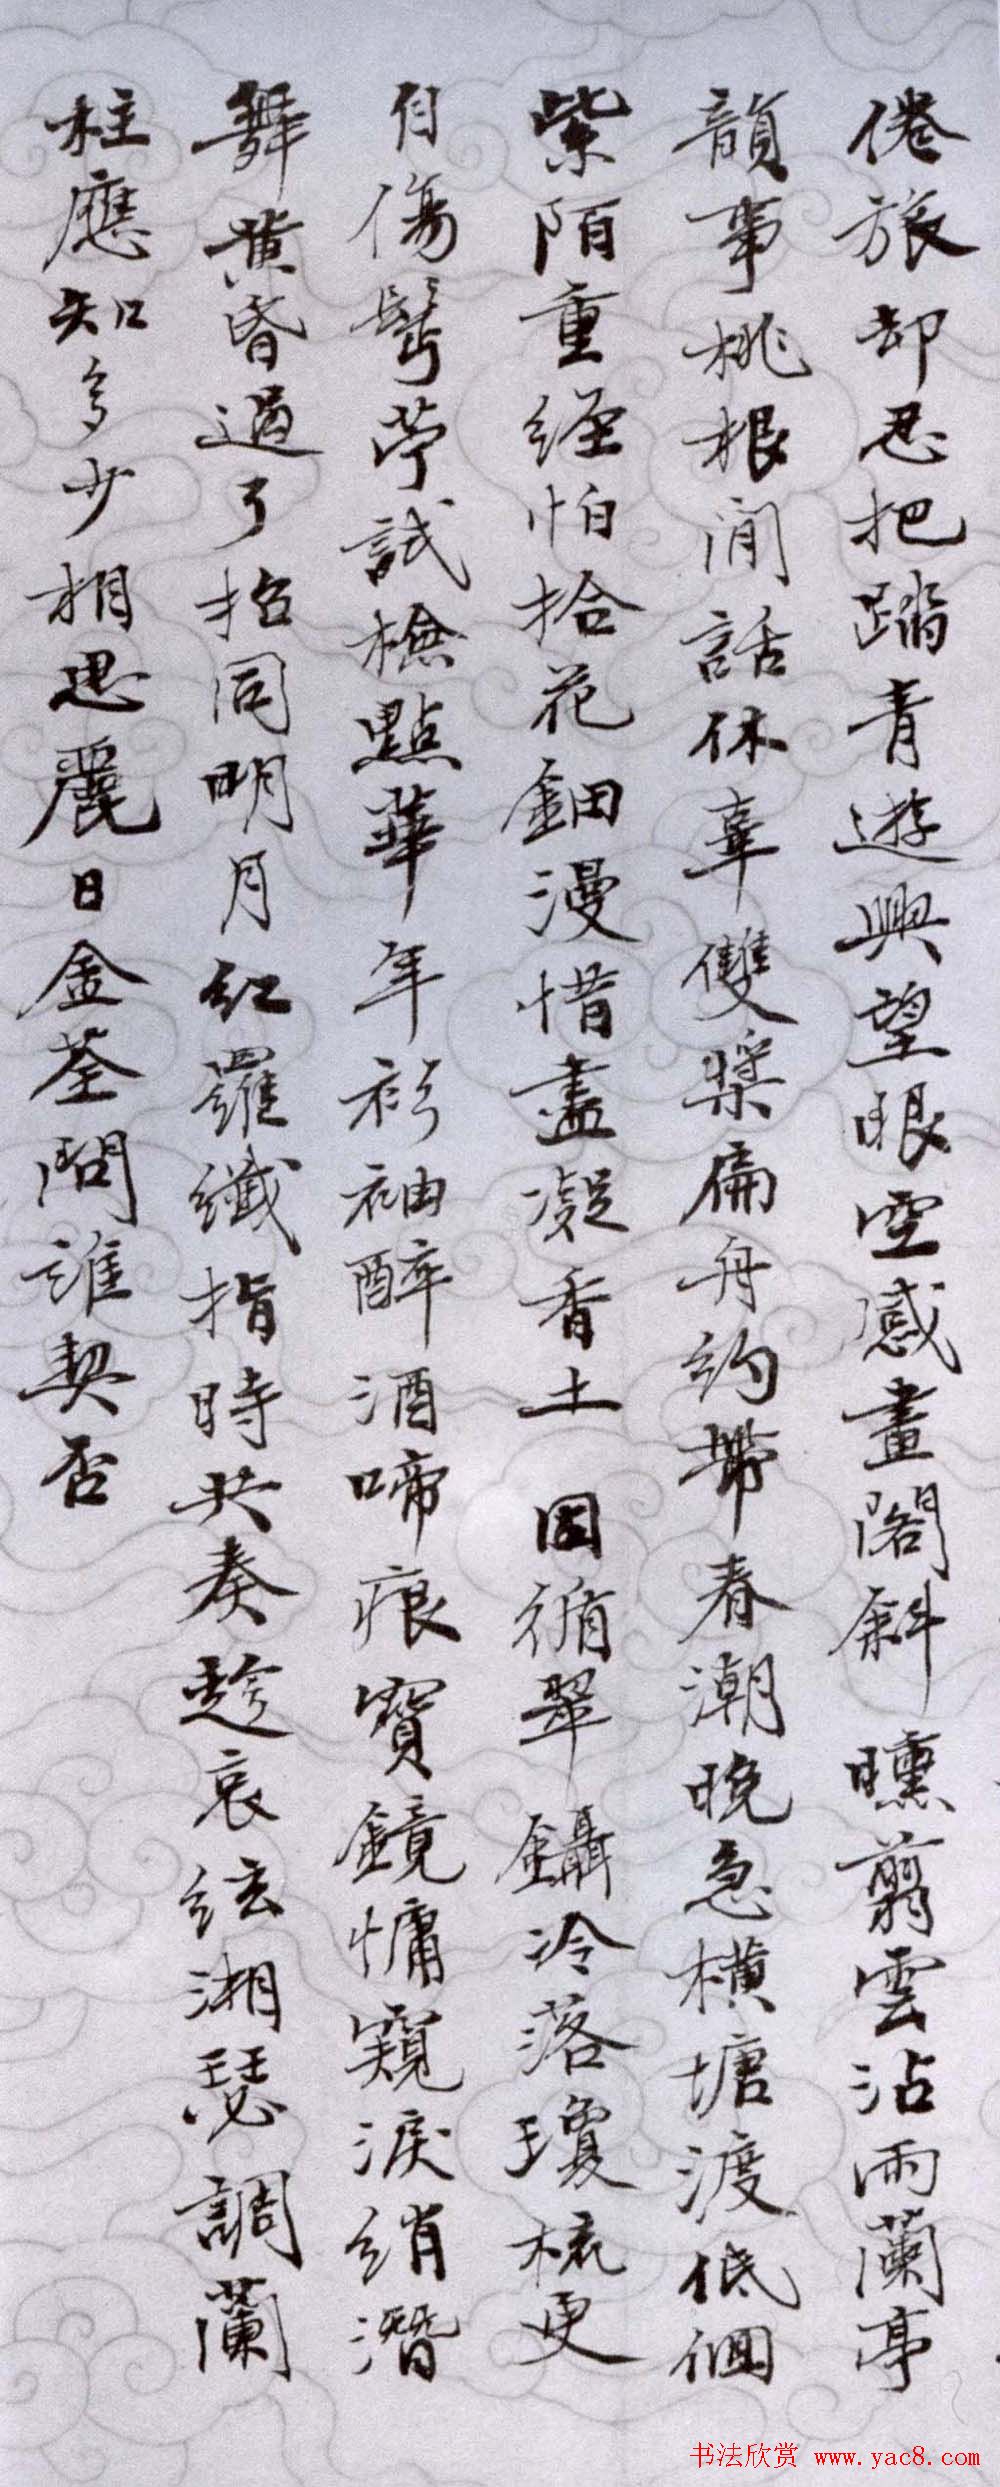 倦旅却忍把踏青遊興望眼空感畫閣斜曛翦雲沾雨蘭亭
韻事桃根閒話休辜雙槳扁舟約帶春潮晚急橫塘渡低徊
紫陌重經怕拾花鈿漫惜盡凝香土 因循翠鑷冷落瓊梳更
自傷鬢薴試檢點華年衫袖醉酒啼痕寶鏡慵窺淚綃潛
舞黃昏過了招同明月紅羅纖指時共奏趁哀絃湘瑟調蘭
柱應知多少相思麗日金荃問誰契否
书法欣赏 www.yac8.com